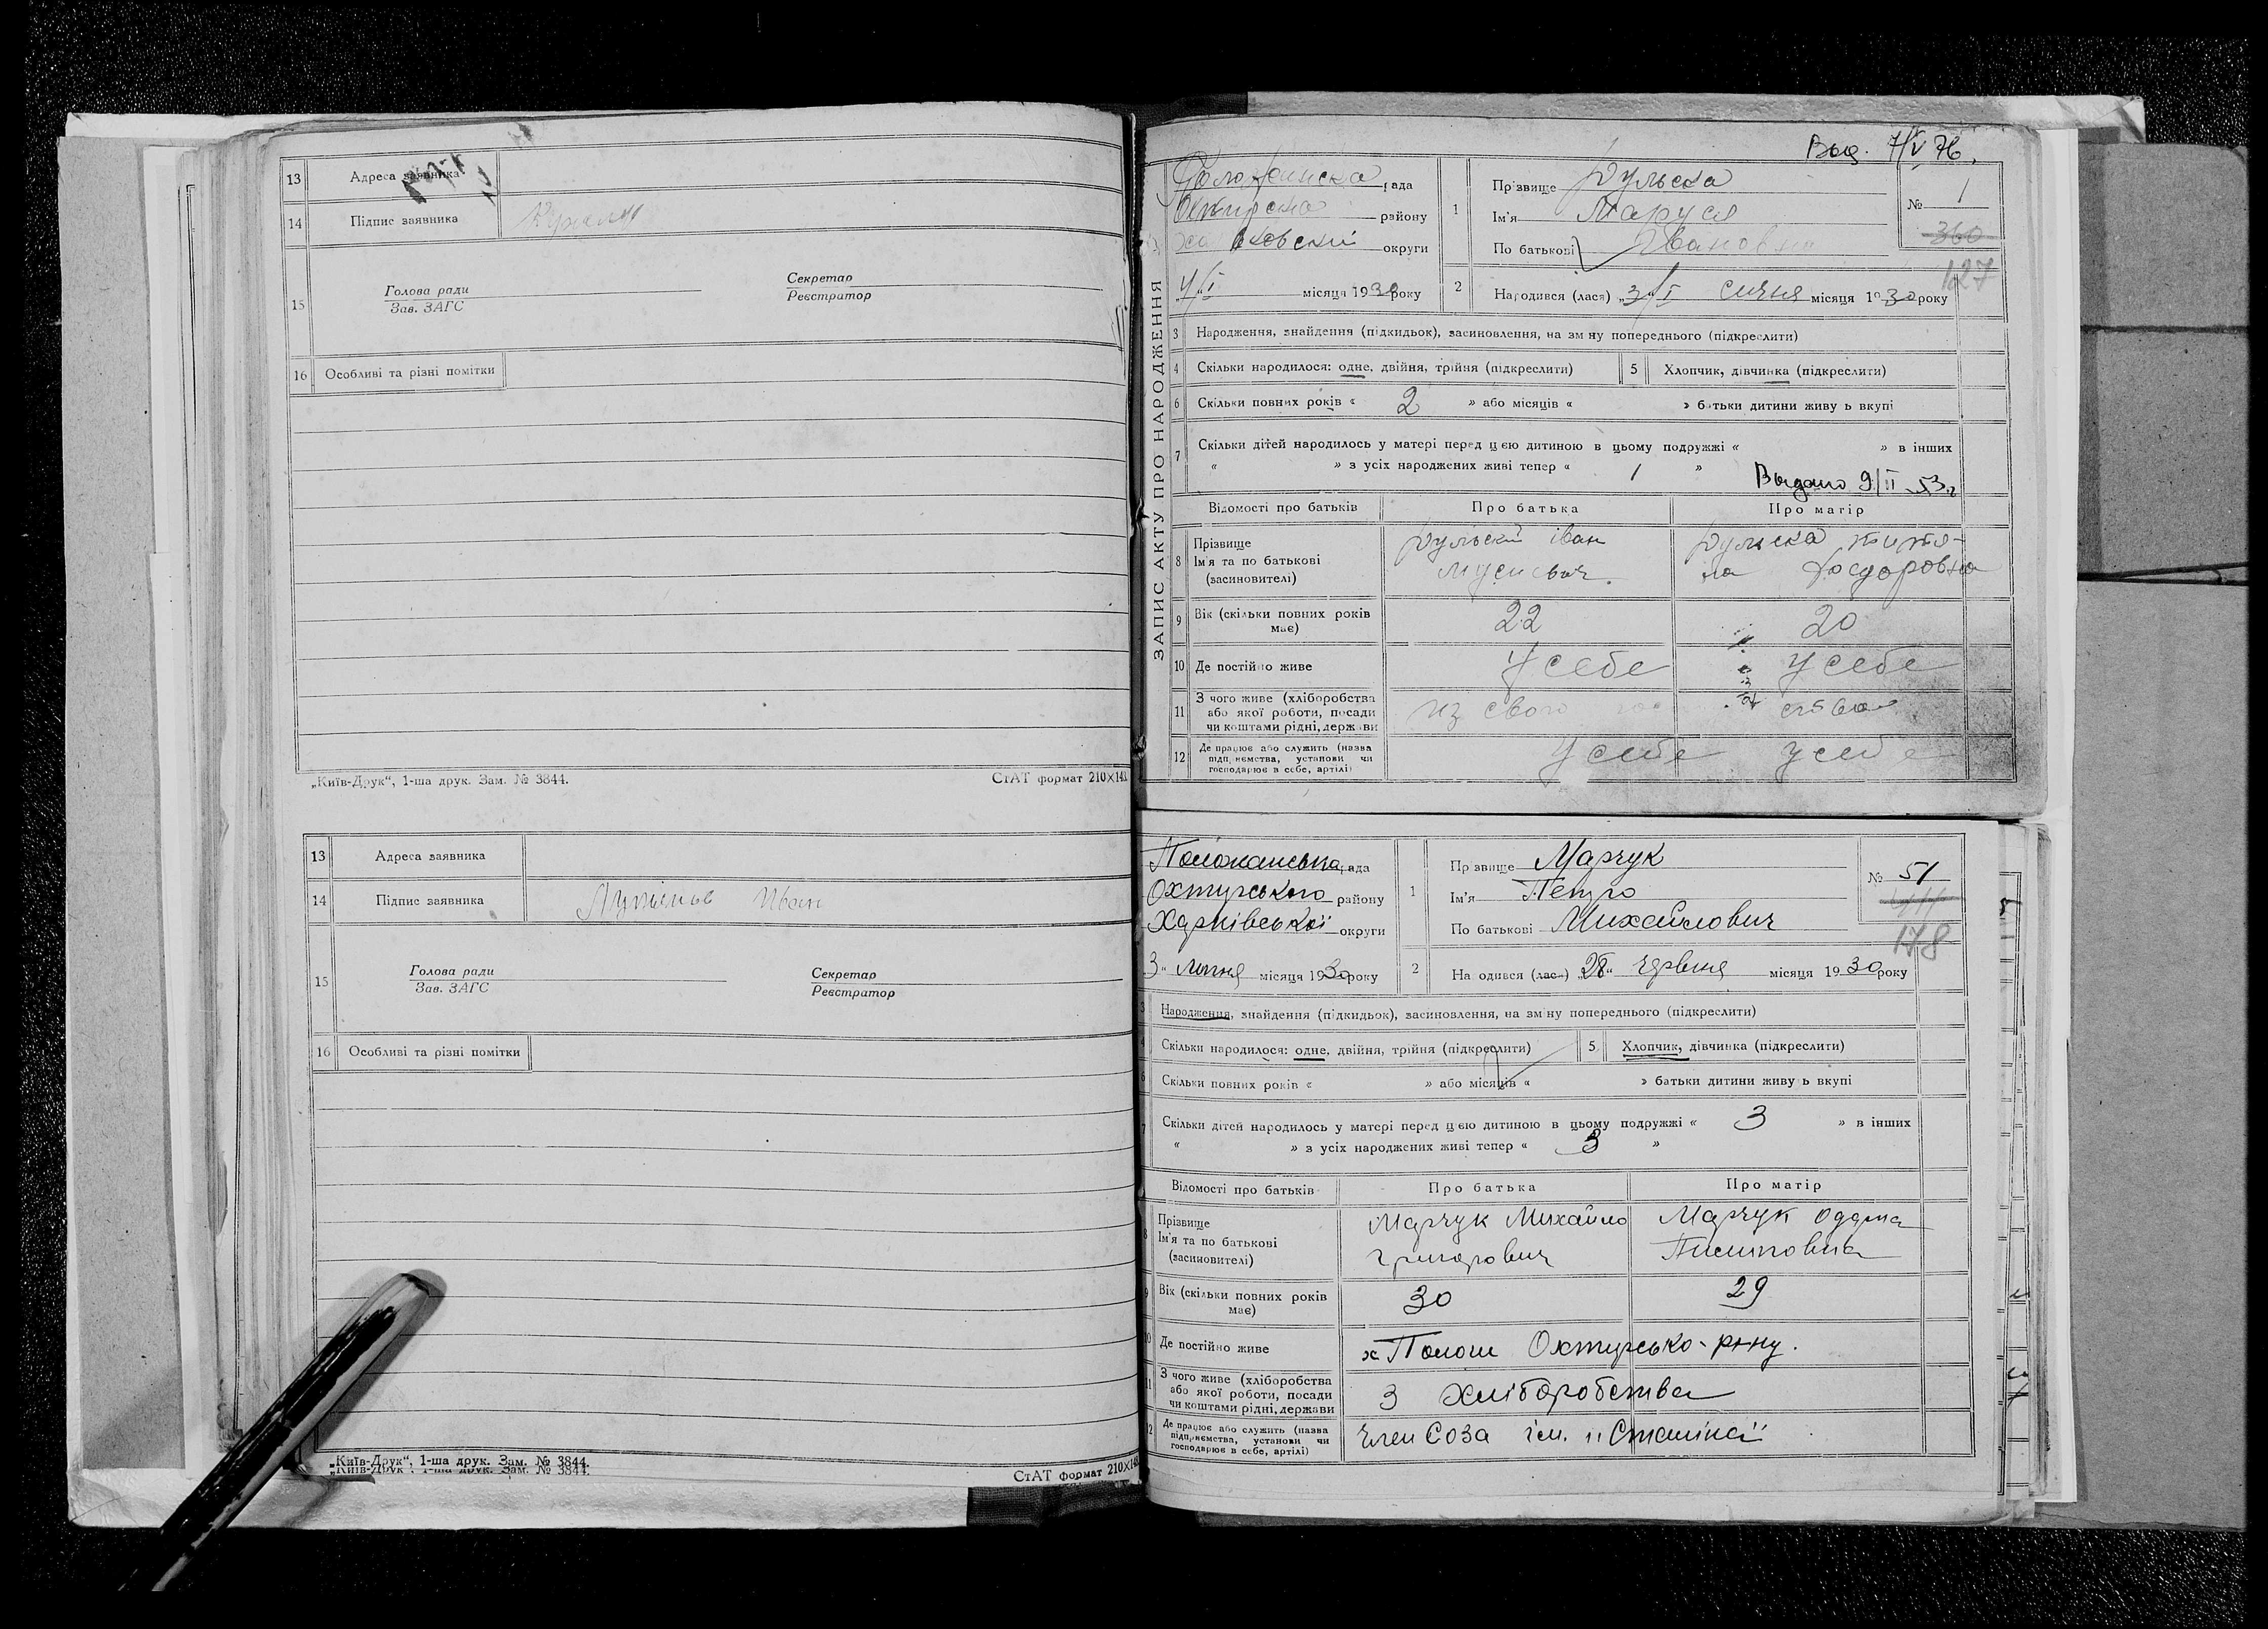 13 Адреса заявника
14 Підпис заявника
15 Голова ради
Зав. ЗАГС
Секретар
Реєстратор
16 Особливі та різні помітки
„Київ-Друк“, 1-ша друк. Зам. № 3844.
СтАТ формат 210×148
13 Адреса заявника
14 Підпис заявника Иван
15 Голова ради
Зав. ЗАГС
Секретар
Реєстратор
16 Особливі та різні помітки
„Київ-Друк“, 1-ша друк. Зам. № 3844.
„Київ-Друк“, 1-ша друк. Зам. № 3844.
СтАТ формат 210×148
Выд. 7/V 76.
ЗАПИС АКТУ ПРО НАРОДЖЕННЯ
рада
району
округи
4/I місяця 1930 року
1 Прізвище Рульска
Ім'я Маруся
По батькові Ивановна
№ 1
360
127
2 Народився (лася) „3/I січня місяця 1930 року
3 Народження, знайдення (підкидьок), засиновлення, на зм ну попереднього (підкреслити)
4 Скільки народилося: одне, двійня, трійня (підкреслити) 5 Хлопчик, дівчинка (підкреслити)
6 Скільки повних років « 2 » або місяців « » батьки дитини живу ь вкупі
7 Скільки дітей народилось у матері перед цією дитиною в цьому подружжі « » в інших
« » з усіх народжених живі тепер « 1 »
Выдано 9/II 53 г
Відомості про батьків Про батька Про матір
8 Прізвище
Ім'я та по батькові
(засиновителі)
Рульский іван
мусиевич.
Рульска титя-
на Фэдоровна
9 Вік (скільки повних років
має) 22 20
10 Де постійно живе У себе У себе
11 З чого живе (хліборобства
або якої роботи, посади
чи коштами рідні, держави
из свого ства
12 Де працює або служить (назва
підприємства, установи чи
господарює в себе, артілі)
У себе у себе
рада
Охтирського району
Харківської округи
3 „ липня місяця 1930 року
1 Прізвище Марчук
Ім'я Петро
По батькові Михайлович
№ 51
178
2 На одився (лась) „28“ червня місяця 1930 року
3 Народження, знайдення (підкидьок), засиновлення, на зм ну попереднього (підкреслити)
4 Скільки народилося: одне, двійня, трійня (підкреслити) 5 Хлопчик, дівчинка (підкреслити)
6 Скільки повних років « » або місяців « » батьки дитини живу ь вкупі
7 Скільки дітей народилось у матері перед цією дитиною в цьому подружжі « 3 » в інших
« » з усіх народжених живі тепер « 3 »
Відомості про батьків Про батька Про матір
8 Прізвище
Ім'я та по батькові
(засиновителі)
Марчук Михайло
Григорович
Марчук
9 Вік (скільки повних років
має) 30 29
10 Де постійно живе х Охтирсько- р-ну.
11 З чого живе (хліборобства
або якої роботи, посади
чи коштами рідні, держави
З хліборобства
12 Де працює або служить (назва
підприємства, установи чи
господарює в себе, артілі)
Член Соза ім. „Сталіна“